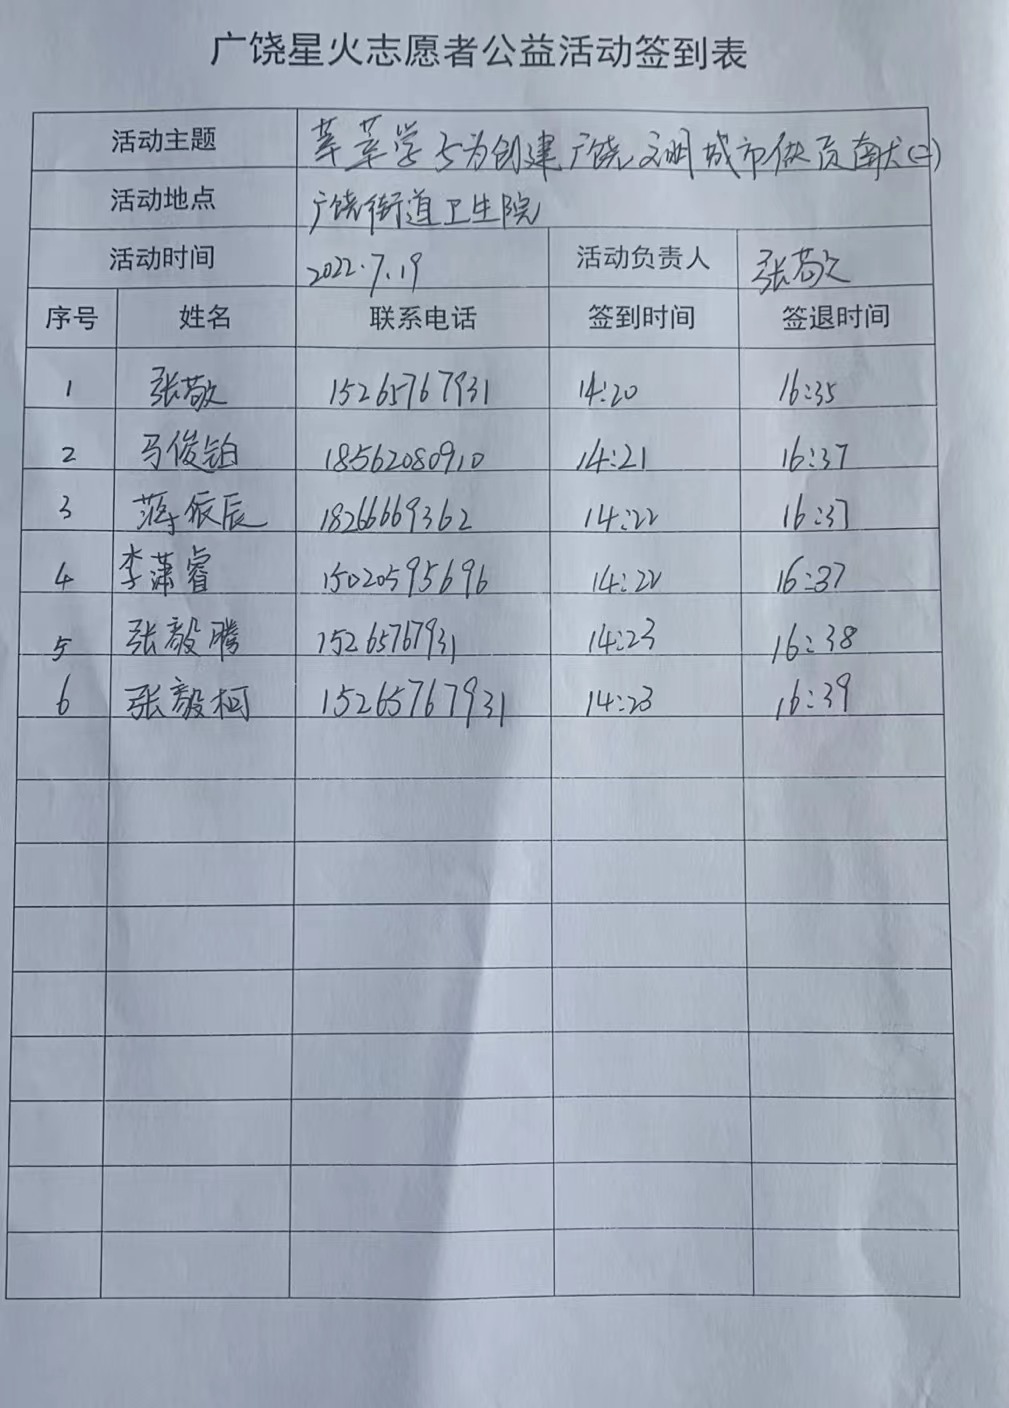 广饶星火志愿者公益活动签到表
活动主题 莘莘学子为创建广饶文明城市做贡献(二)
活动地点 广饶街道卫生院
活动时间 2022.7.19 活动负责人 张敬文
序号 姓名 联系电话 签到时间 签退时间
1 张敬文 15265767931 14:20 16:35
2 马俊铂 18562080910 14:21 16:37
3 蒋依辰 18266669362 14:22 16:37
4 李潇睿 15020595696 14:22 16:37
5 张毅腾 15265767931 14:23 16:38
6 张毅柯 15265767931 14:23 16:39